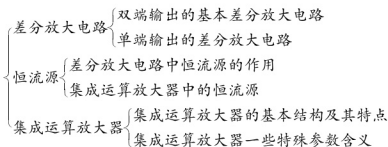 差分放大电路
双端输出的基本差分放大电路
单端输出的差分放大电路
恒流源
差分放大电路中恒流源的作用
集成运算放大器中的恒流源
集成运算放大器
集成运算放大器的基本结构及其特点
集成运算放大器一些特殊参数含义